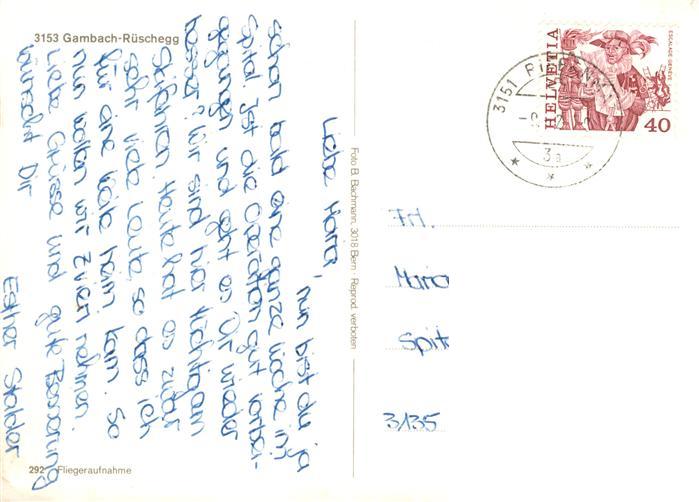 3153 Gambach-Rüschegg
Liebe Maria,
nun bist du ja
schon bald eine ganze Woche im
Spital. Ist die Operation gut vorbei-
gegangen und geht es Dir wieder
besser? Wir sind hier tüchtig am
Skifahren. Heute hat es zwar
sehr viele Leute, so dass ich
für eine Weile heim kam. So
nun wollen wir Zvieri nehmen.
Liebe Grüsse und gute Besserung
wünscht Dir
Esther Stalder
292 Fliegeraufnahme
Foto B. Bachmann, 3018 Bern · Reprod. verboten
HELVETIA
ESCALADE GENEVE
40
3151
3a
Frl.
Maria
Spit
3135